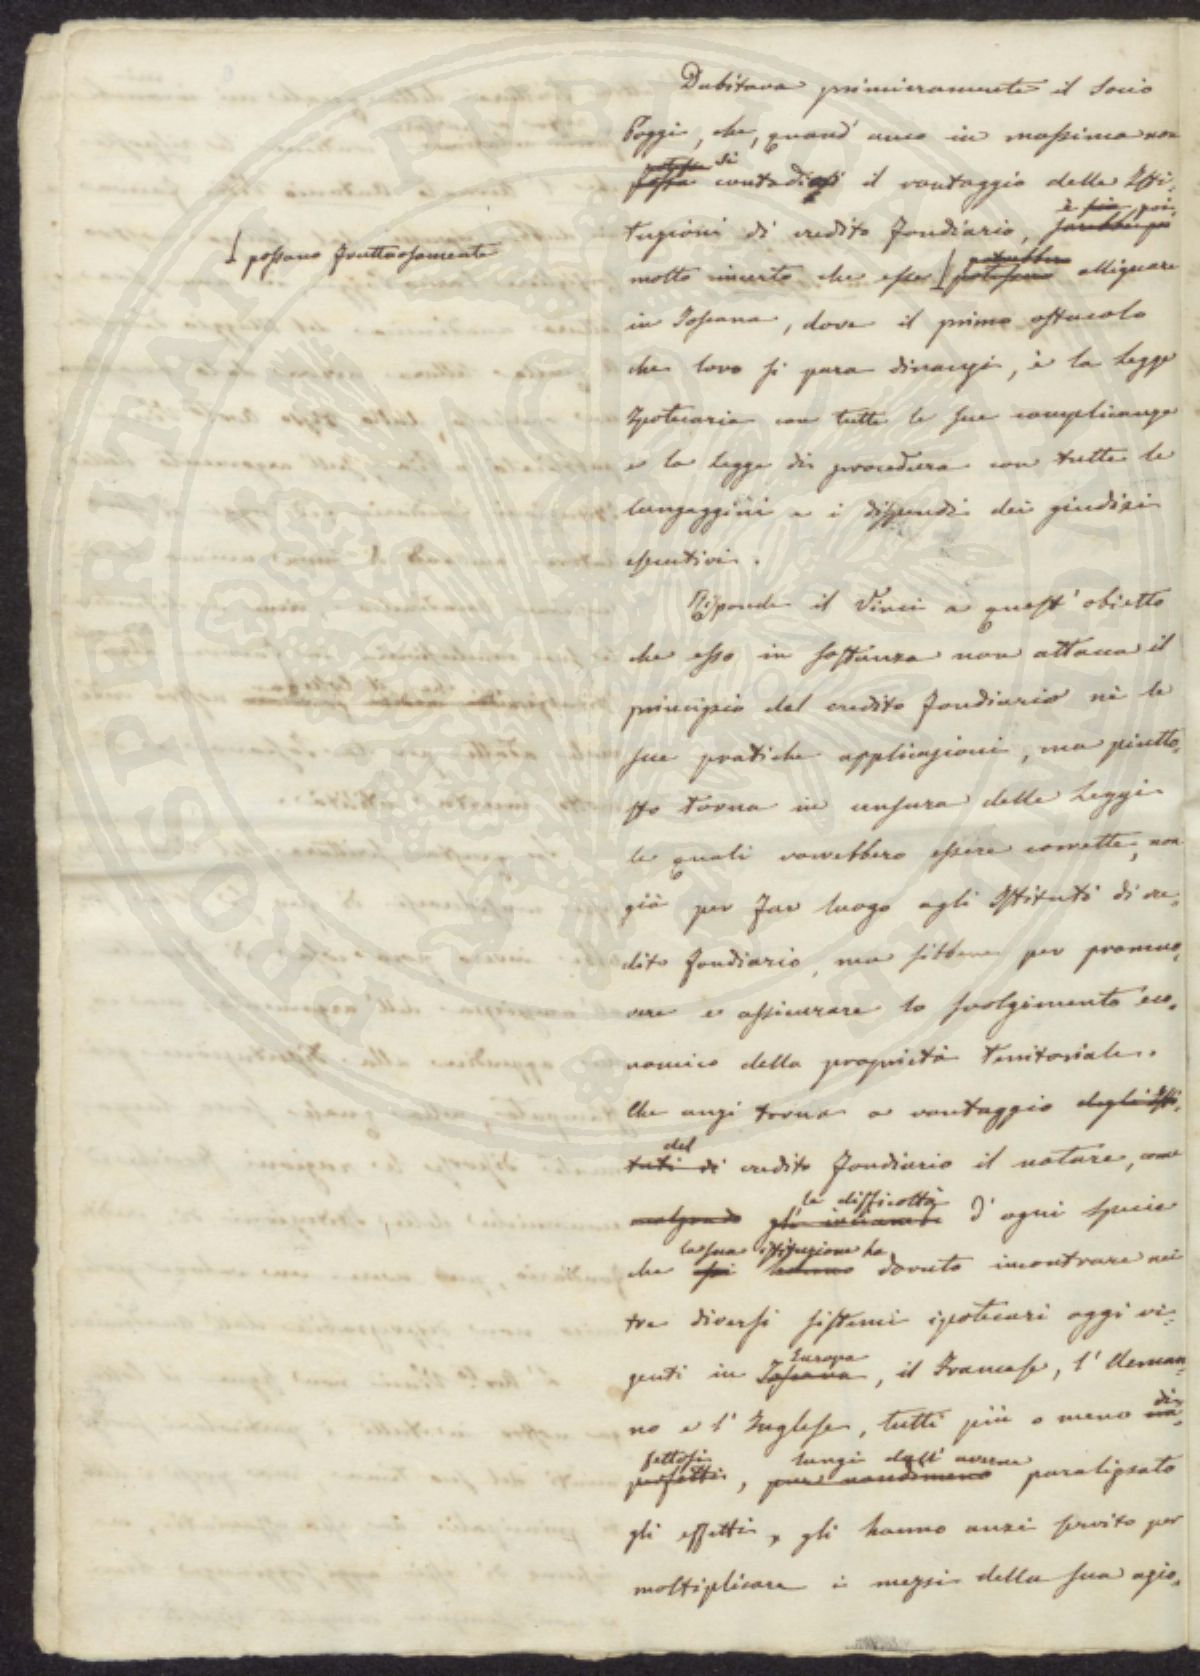 Dubitava primieramente il Socio
Poggi, che, quand' anco in massima non
potesse si
possa contradirsi il vantaggio delle Isti-
è poi
tuzioni di credito fondiario, sarebbe poi
possano fruttuosamente
potrebbero
molto incerto che esse potessero allignare
in Toscana, dove il primo ostacolo
che loro si para dinanzi, è la Legge
Ipotecaria con tutte le sue complicanze
e la Legge di procedura con tutte le
lungaggini e i dispendi dei giudizi
esecutivi.
Risponde il Vinci a quest' obietto
che esso in sostanza non attacca il
principio del credito fondiario nè le
sue pratiche applicazioni, ma piutto-
sto torna in censura delle Leggi
le quali vorrebbero essere corrette, non
già per far luogo agli Istituti di cre-
dito fondiario, ma sibbene per promuo-
vere e assicurare lo svolgimento eco-
nomico della proprietà territoriale.
Che anzi torna a vantaggio degli Isti-
del
tuti di credito fondiario il notare, come
le difficoltà
malgrado gli inciampi d' ogni specie
la sua istituzione ha
che essi hanno dovuto incontrare nei
tre diversi sistemi ipotecari oggi vi-
Europa
genti in Toscana, il Francese, l' Aleman-
di-
no e l' Inglese, tutti più o meno im-
fettosi lungi dall' averne
perfetti, pure nondimeno paralizzato
gli effetti, gli hanno anzi servito per
moltiplicare i mezzi della sua azio-